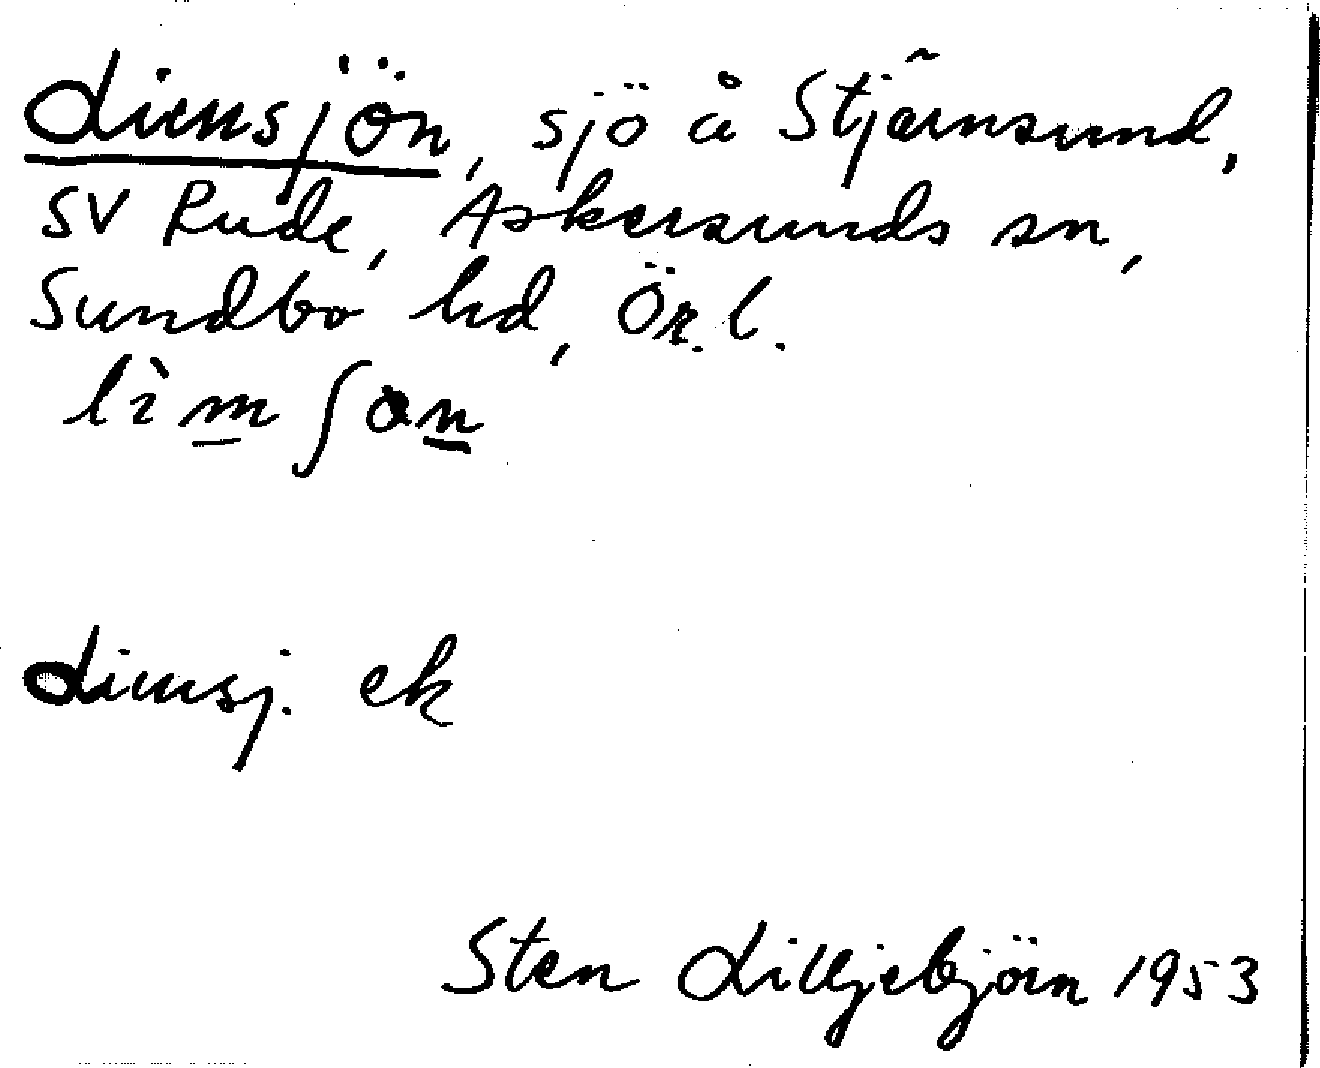 Limsjön, sjö å Stjärnsund,
SV Rude, Askersunds sn,
Sundbo hd, Ör. l.
lìmʃon
Limsj. ek
Sten Lilljebjörn 1953